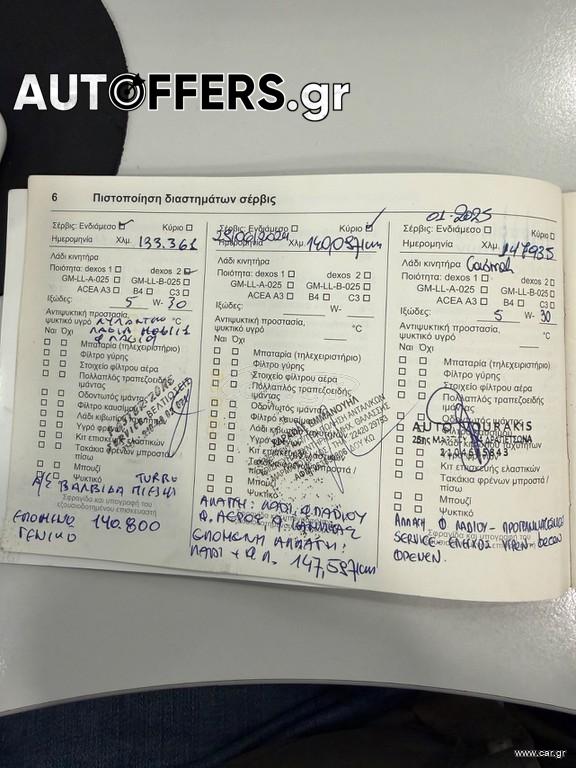 AUTOFFERS.gr
6 Πιστοποίηση διαστημάτων σέρβις
Σέρβις: Ενδιάμεσο Κύριο
Ημερομηνία Χλμ. 133.361
Λάδι κινητήρα
Ποιότητα: dexos 1 dexos 2
GM-LL-A-025 GM-LL-B-025
ACEA A3 B4 C3
Ιξώδες: 5 W- 30
Αντιψυκτική προστασία,
ψυκτικό υγρό °C
Ναι Όχι
Μπαταρία (τηλεχειριστήριο)
Φίλτρο γύρης
Στοιχείο φίλτρου αέρα
Πολλαπλός τραπεζοειδής
ιμάντας
Οδοντωτός ιμάντας
Φίλτρο καυσίμου
Κιτ επισκευής ελαστικών
Τακάκια φρένων μπροστά /
πίσω
Μπουζί
Ψυκτικό
A/C ΒΑΛΒΙΔΑ ΠΙΕΣΗΣ TURBO
Σφραγίδα και υπογραφή του
εξουσιοδοτημένου επισκευαστή
ΕΠΟΜΕΝΟ 140.800
ΓΕΝΙΚΟ
Σέρβις: Ενδιάμεσο Κύριο
Ημερομηνία Χλμ. 140.087km
Λάδι κινητήρα
Ποιότητα: dexos 1 dexos 2
GM-LL-A-025 GM-LL-B-025
ACEA A3 B4 C3
Ιξώδες: W-
Αντιψυκτική προστασία,
ψυκτικό υγρό °C
Ναι Όχι
Μπαταρία (τηλεχειριστήριο)
Φίλτρο γύρης
Στοιχείο φίλτρου αέρα
Πολλαπλός τραπεζοειδής
ιμάντας
Οδοντωτός ιμάντας
Τακάκια φρένων μπροστά /
πίσω
Μπουζί
Ψυκτικό
ΑΛΛΑΓΗ: ΛΑΔΙ, Φ ΛΑΔΙΟΥ
Φ. ΑΕΡΟΣ, Φ
ΕΠΟΜΕΝΗ ΑΛΛΑΓΗ:
ΛΑΔΙ + Φ.Λ. 147,587km
01-2025
Σέρβις: Ενδιάμεσο Κύριο
Ημερομηνία Χλμ. 147935
Λάδι κινητήρα Castrol
Ποιότητα: dexos 1 dexos 2
GM-LL-A-025 GM-LL-B-025
ACEA A3 B4 C3
Ιξώδες: 5 W- 30
Αντιψυκτική προστασία,
ψυκτικό υγρό °C
Ναι Όχι
Μπαταρία (τηλεχειριστήριο)
Φίλτρο γύρης
Στοιχείο φίλτρου αέρα
Πολλαπλός τραπεζοειδής
ιμάντας
Κιτ επισκευής ελαστικών
Τακάκια φρένων μπροστά /
πίσω
Μπουζί
Ψυκτικό
ΑΛΛΑΓΗ Φ ΛΑΔΙΟΥ - ΠΡΟΓΡΑΜΜΑΤΙΣΜΕΝΟ
SERVICE - ΕΛΕΓΧΟΣ ΥΓΡΩΝ -
ΦΡΕΝΩΝ.
www.car.gr